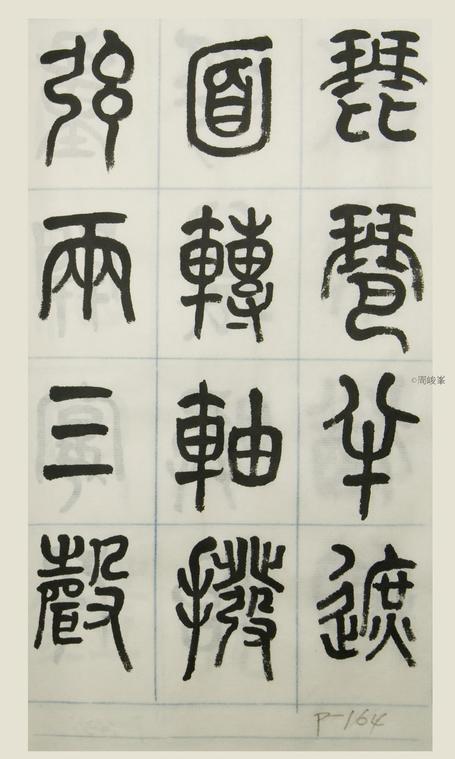 琵琶半遮
面轉軸撥
弦兩三聲
©周峻峯
P-164